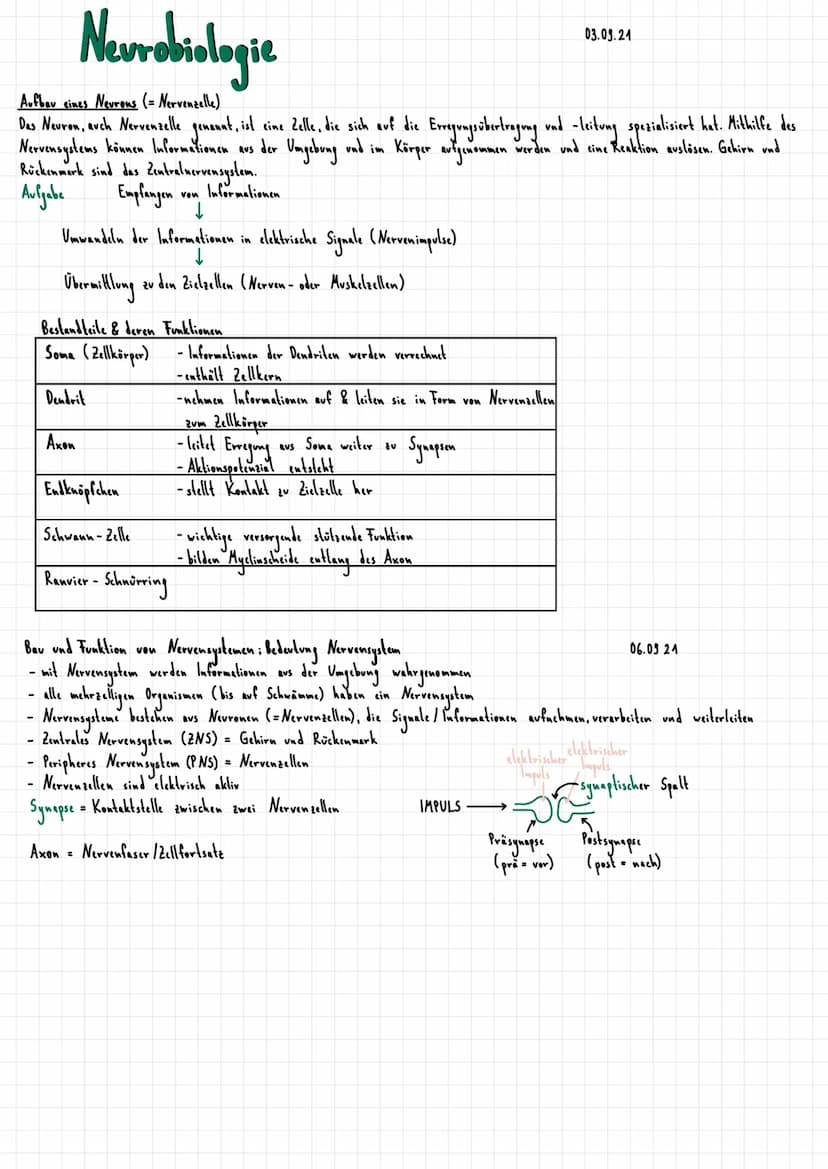 Neurobiologie
03.09.24
Aufbau eines Neurons (= Nervenzelle)
Das Neuron, auch Nervenzelle genannt, ist eine Zelle, die sich auf die Erregungsübertragung und -leitung spezialisiert hat. Mithilfe des
Nervensystems können Informationen aus der Umgebung und im Körper aufgenommen werden und eine Reaktion auslösen. Gehirn und
Rückenmark sind das Zentralnervensystem.
Aufgabe Empfangen von Informationen
↓
Umwandeln der Informationen in elektrische Signale (Nervenimpulse)
↓
Übermittlung zu den Zielzellen (Nerven- oder Muskelzellen)
Bestandteile & deren Funktionen
Soma (Zellkörper) - Informationen der Dendriten werden verrechnet
- enthält Zellkern
Dendrit - nehmen Informationen auf & leiten sie in Form von Nervenzellen
zum Zellkörper
Axon - leitet Erregung aus Soma weiter zu Synapsen
- Aktionspotenzial entsteht
Endknöpfchen - stellt Kontakt zu Zielzelle her
Schwann-Zelle - wichtige versorgende stützende Funktion
- bilden Myelinscheide entlang des Axon
Ranvier-Schnürring
Bau und Funktion von Nervensystemen: Bedeutung Nervensystem
06.09 24
- mit Nervensystem werden Informationen aus der Umgebung wahrgenommen
- alle mehrzelligen Organismen (bis auf Schwämme) haben ein Nervensystem
- Nervensysteme bestehen aus Neuronen (=Nervenzellen), die Signale/Informationen aufnehmen, verarbeiten und weiterleiten
- Zentrales Nervensystem (ZNS) = Gehirn und Rückenmark
- Peripheres Nervensystem (PNS) = Nervenzellen
- Nervenzellen sind elektrisch aktiv
Synapse = Kontaktstelle zwischen zwei Nervenzellen
Axon = Nervenfaser/Zellfortsatz
elektrischer Impuls
elektrischer Impuls
synaptischer Spalt
IMPULS →
Präsynapse
(prä = vor)
Postsynapse
(post = nach)